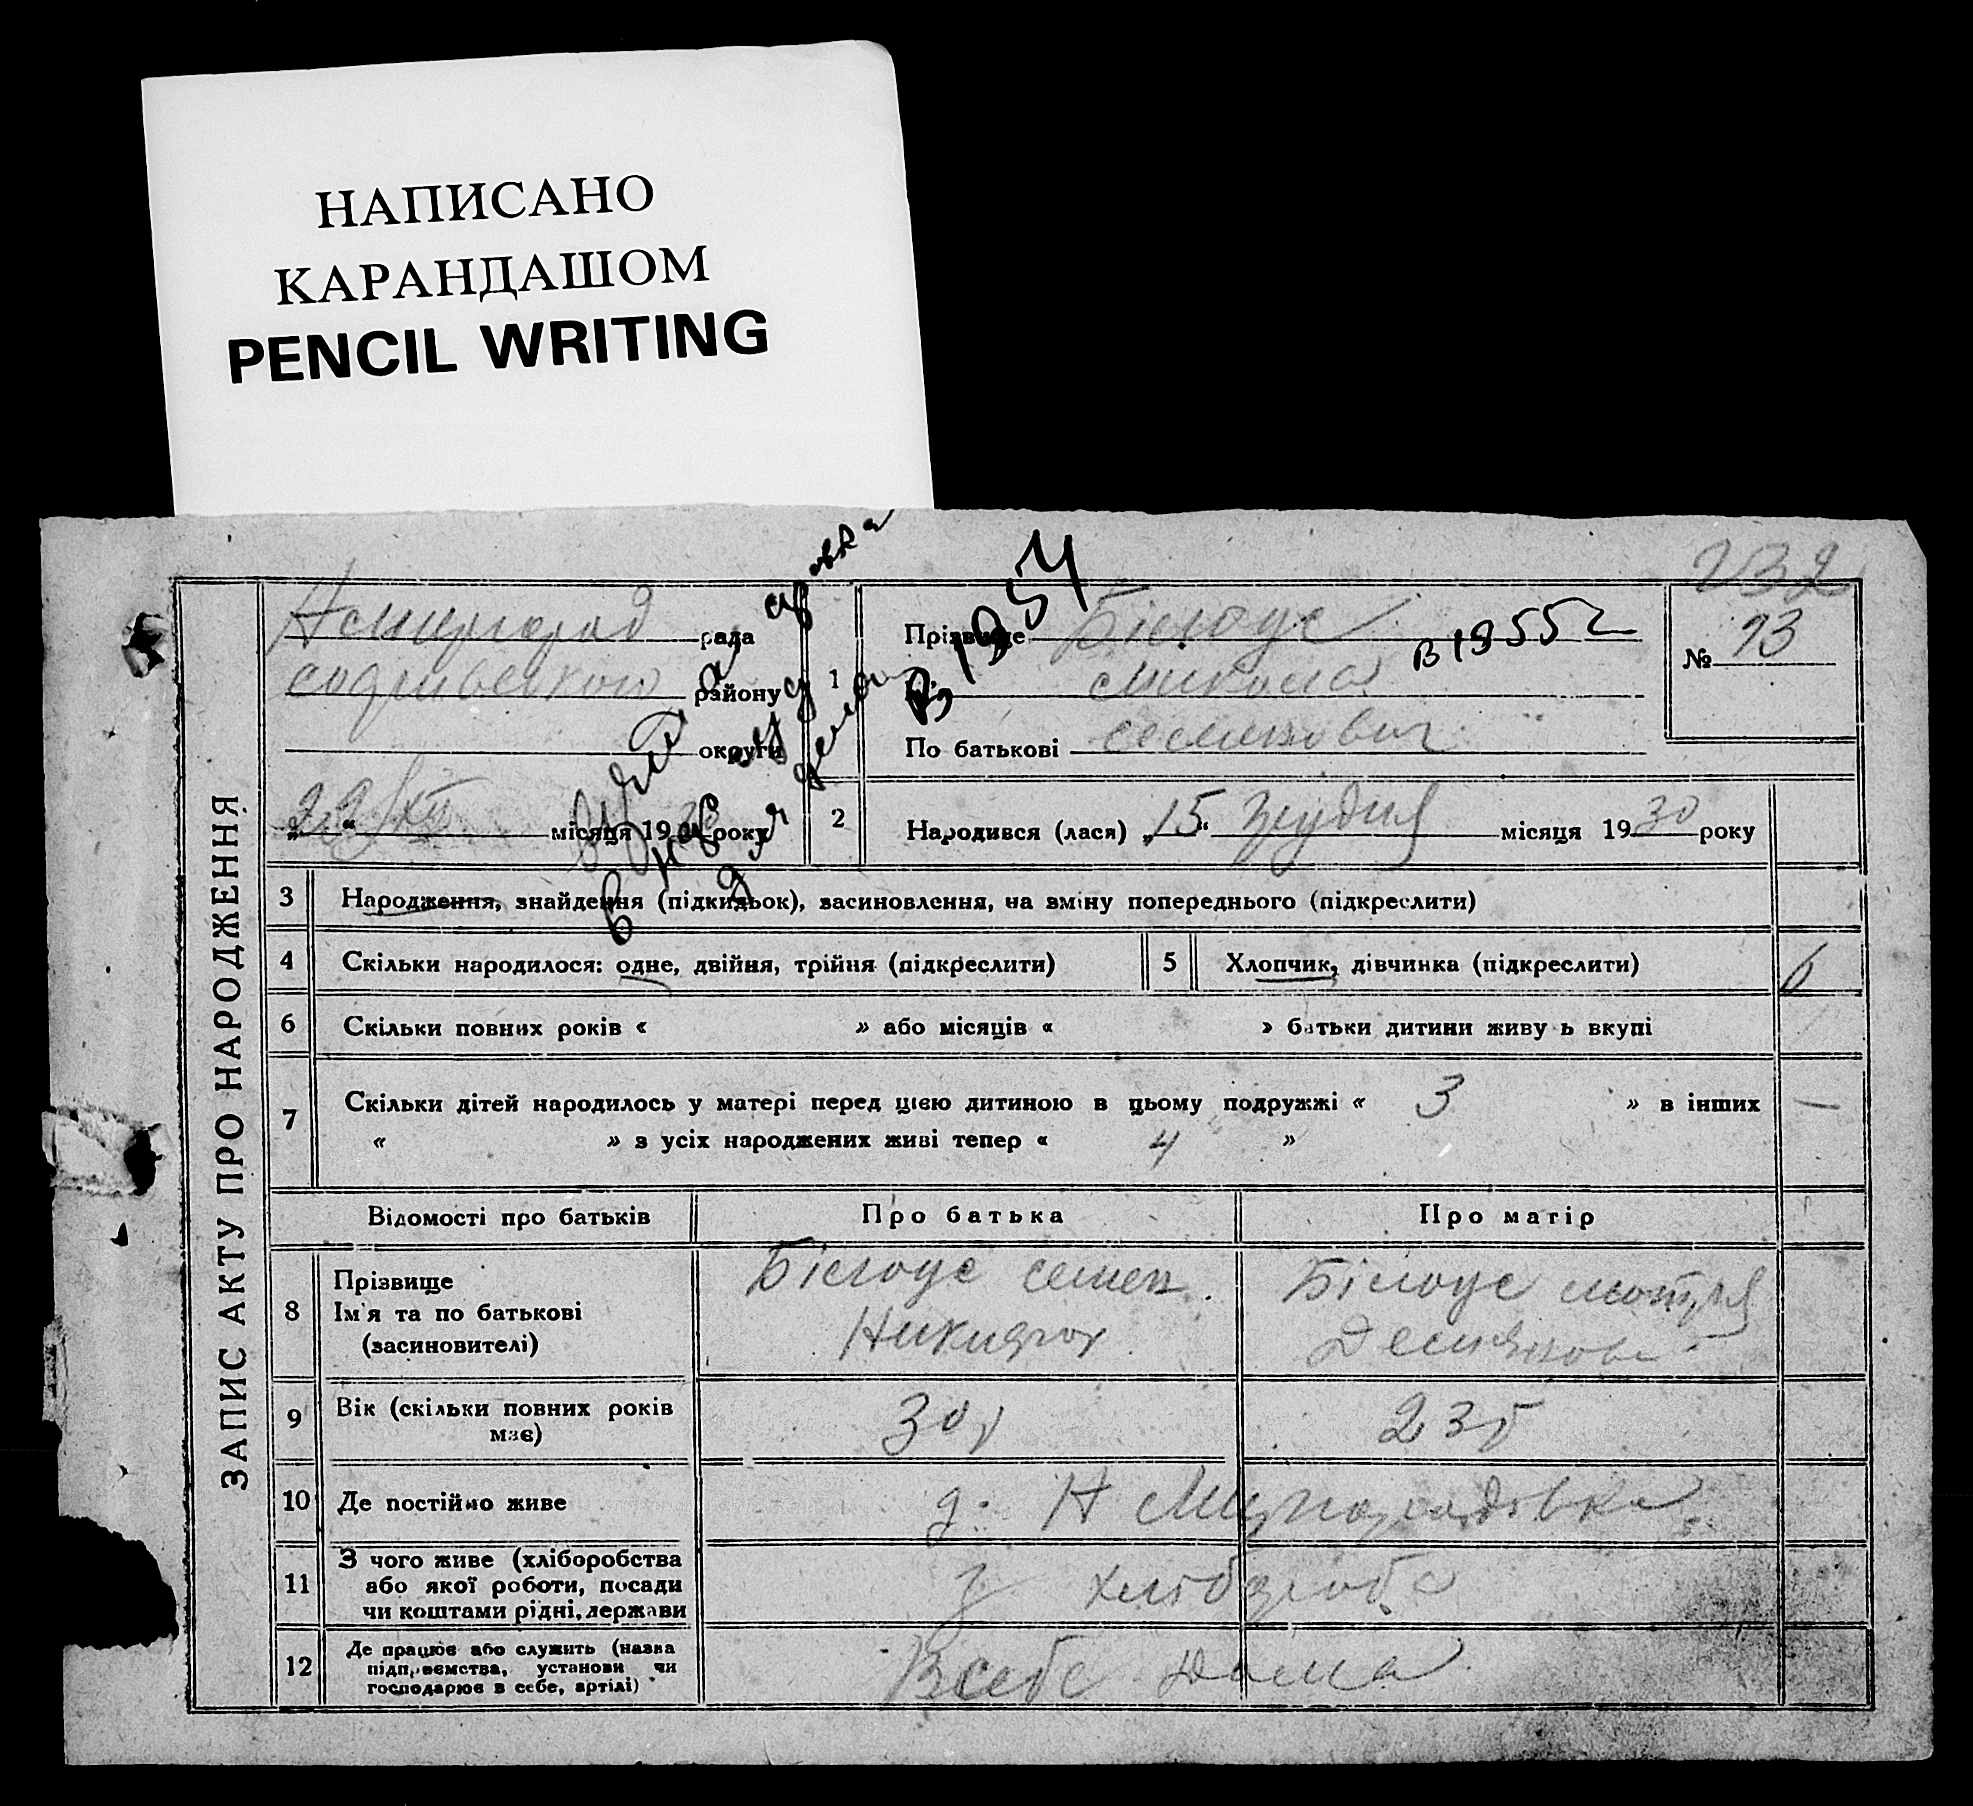 НАПИСАНО
КАРАНДАШОМ
PENCIL WRITING
232
рада
району
округи
29 XII місяця 19 30 року
1
Прізвище Білоус
Микола
По батькові Семенович
В 1954
В 19552
№ 93
2
Народився (лася) „15“ Грудня місяця 1930 року
ЗАПИС АКТУ ПРО НАРОДЖЕННЯ
3 Народження, знайдення (підкидьок), засиновлення, на зміну попереднього (підкреслити)
4 Скільки народилося: одне, двійня, трійня (підкреслити)
5 Хлопчик, дівчинка (підкреслити)
6 Скільки повних років « » або місяців « » батьки дитини живу ь вкупі
7 Скільки дітей народилось у матері перед цією дитиною в цьому подружжі « 3 » в інших —
« » з усіх народжених живі тепер « 4 »
Відомості про батьків Про батька Про матір
8 Прізвище
Ім'я та по батькові
(засиновителі)
Білоус Семен
Білоус Мотря
9 Вік (скільки повних років
має)
30 р
23 р
10 Де постійно живе
11 З чого живе (хліборобства
або якої роботи, посади
чи коштами рідні, держави
з хлібороб
12 Де працює або служить (назва
підприємства, установи чи
господарює в себе, артілі)
В себе дома